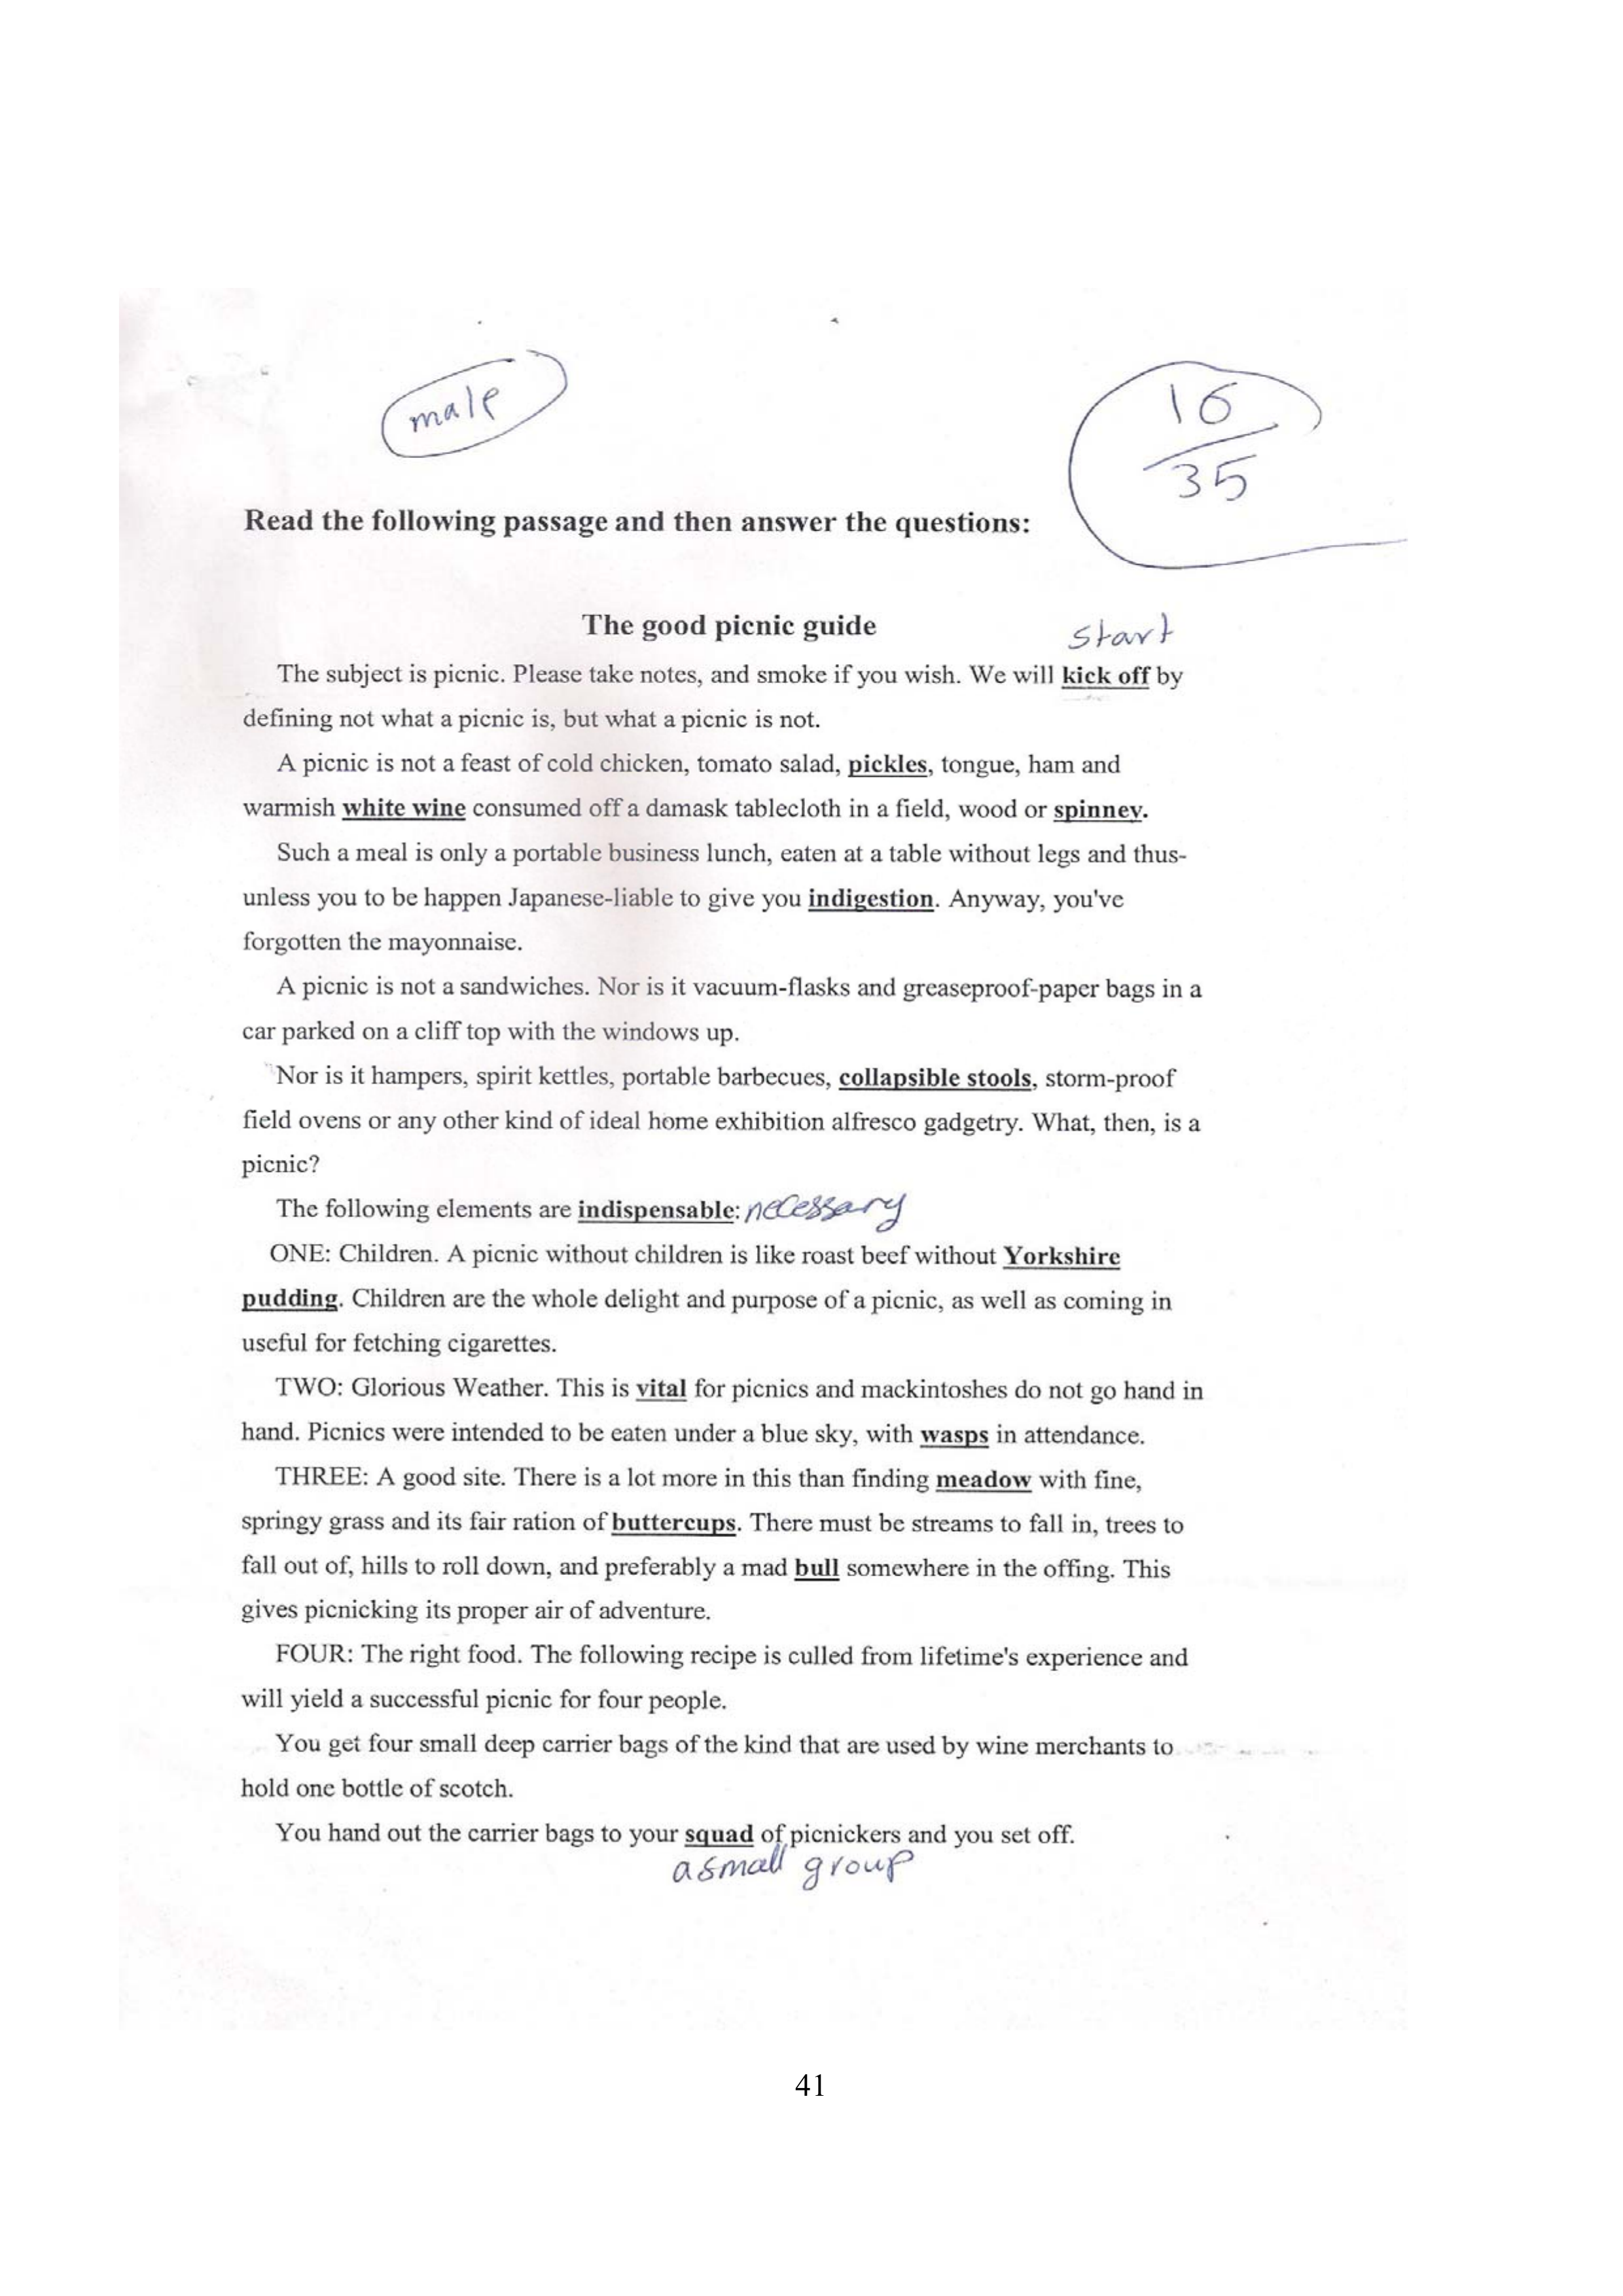 male
16
35
Read the following passage and then answer the questions:
The good picnic guide
start
The subject is picnic. Please take notes, and smoke if you wish. We will kick off by
defining not what a picnic is, but what a picnic is not.
A picnic is not a feast of cold chicken, tomato salad, pickles, tongue, ham and
warmish white wine consumed off a damask tablecloth in a field, wood or spinney.
Such a meal is only a portable business lunch, eaten at a table without legs and thus-
unless you to be happen Japanese-liable to give you indigestion. Anyway, you've
forgotten the mayonnaise.
A picnic is not a sandwiches. Nor is it vacuum-flasks and greaseproof-paper bags in a
car parked on a cliff top with the windows up.
Nor is it hampers, spirit kettles, portable barbecues, collapsible stools, storm-proof
field ovens or any other kind of ideal home exhibition alfresco gadgetry. What, then, is a
picnic?
The following elements are indispensable: necessary
ONE: Children. A picnic without children is like roast beef without Yorkshire
pudding. Children are the whole delight and purpose of a picnic, as well as coming in
useful for fetching cigarettes.
TWO: Glorious Weather. This is vital for picnics and mackintoshes do not go hand in
hand. Picnics were intended to be eaten under a blue sky, with wasps in attendance.
THREE: A good site. There is a lot more in this than finding meadow with fine,
springy grass and its fair ration of buttercups. There must be streams to fall in, trees to
fall out of, hills to roll down, and preferably a mad bull somewhere in the offing. This
gives picnicking its proper air of adventure.
FOUR: The right food. The following recipe is culled from lifetime's experience and
will yield a successful picnic for four people.
You get four small deep carrier bags of the kind that are used by wine merchants to
hold one bottle of scotch.
You hand out the carrier bags to your squad of picnickers and you set off.
a small group
41